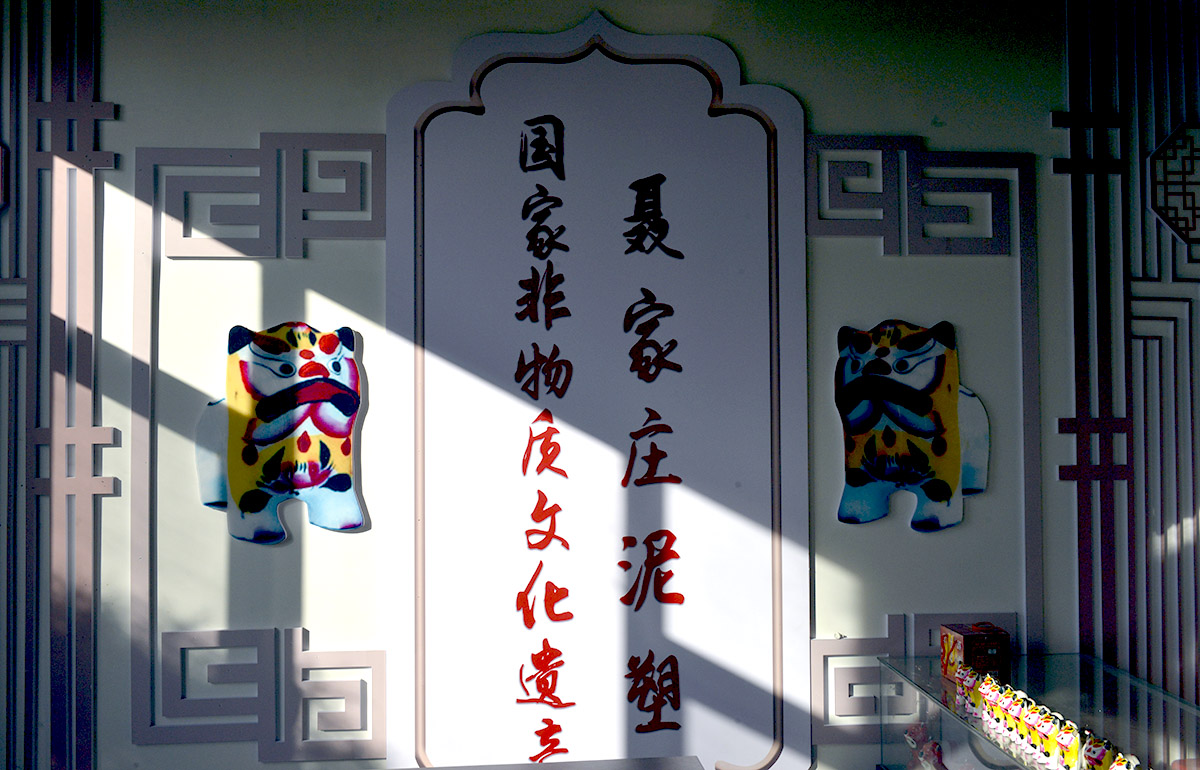 聂家庄泥塑
国家非物质文化遗产